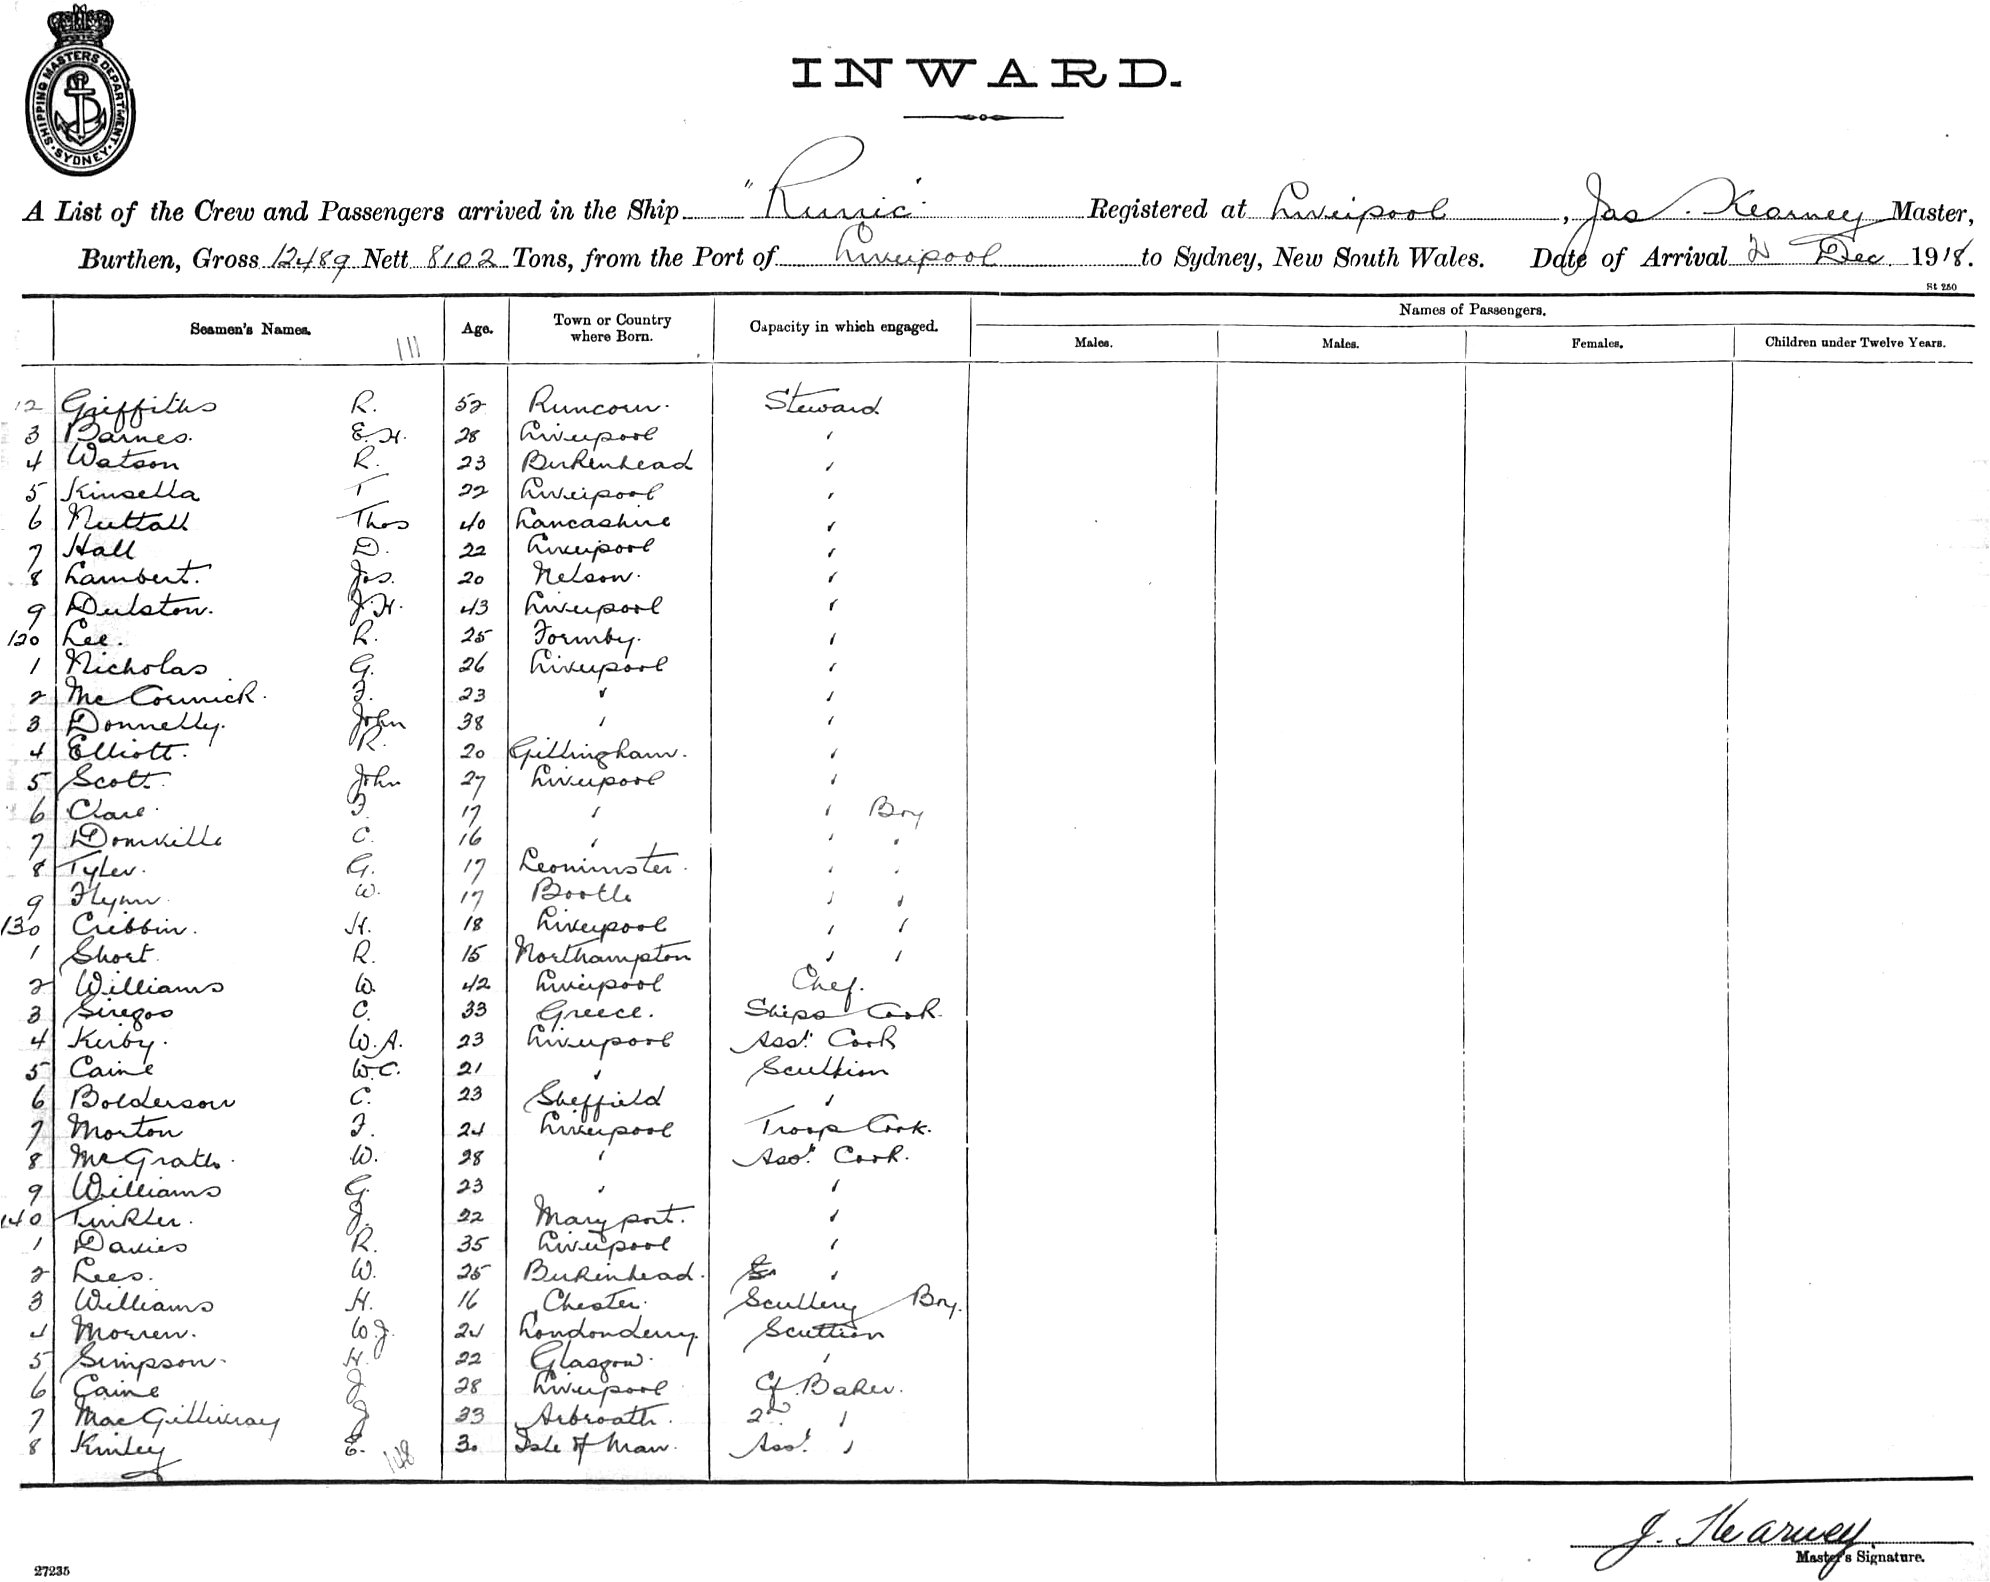 SHIPPING MASTERS DEPARTMENT. SYDNEY.
INWARD.
A List of the Crew and Passengers arrived in the Ship "Runic" Registered at Liverpool, Jas. Kearney Master,
Burthen, Gross 12489 Nett 8102 Tons, from the Port of Liverpool to Sydney, New South Wales. Date of Arrival 2 Dec. 1918.
St 250
Seamen's Names. 111 Age. Town or Country where Born. Capacity in which engaged. Names of Passengers.
Males. Males. Females. Children under Twelve Years.
12 Griffiths R. 52 Runcorn. Steward
3 Barnes. E.H. 28 Liverpool "
4 Watson R. 23 Birkenhead "
5 Kinsella T 22 Liverpool "
6 Nuttall Thos 40 Lancashire "
7 Hall D. 22 Liverpool "
8 Lambert. Jos. 20 Nelson. "
9 Dulston. J.H. 43 Liverpool "
120 Lee. R. 25 Formby. "
1 Nicholas G. 26 Liverpool "
2 McCormick. F. 23 " "
3 Donnelly. John 38 " "
4 Elliott. R. 20 Gillingham. "
5 Scott. John 27 Liverpool "
6 Clare. F. 17 " " Boy
7 Domville C. 16 " " "
8 Tyler. G. 17 Leominster. " "
9 Flynn. W. 17 Bootle " "
130 Cribbin. H. 18 Liverpool " "
1 Short R. 15 Northampton " "
2 Williams W. 42 Liverpool Chef.
3 Siregos C. 33 Greece. Ships Cook.
4 Kirby. W.A. 23 Liverpool Asst. Cook
5 Caine W.C. 21 " Scullion
6 Bolderson C. 23 Sheffield "
7 Morton F. 24 Liverpool Troop Cook.
8 McGrath. W. 28 " Asst. Cook.
9 Williams G. 23 " "
140 Tinkler. J. 22 Maryport. "
1 Davies R. 35 Liverpool "
2 Lees. W. 25 Birkinhead. "
3 Williams H. 16 Chester. Scullery Boy.
4 Morren. W.J. 24 Londonderry. Scullion
5 Simpson. H. 22 Glasgow. "
6 Caine J 28 Liverpool Cf. Baker.
7 MacGillivray J 23 Arbroath. 2nd "
8 Kinley E. 148 30 Isle of Man. Asst. "
J. Kearney
Master's Signature.
27235